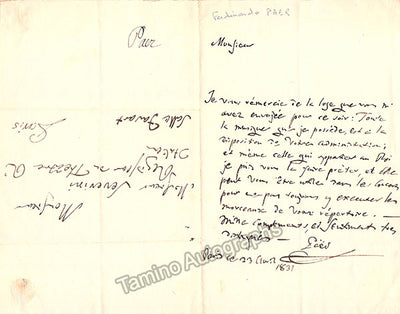 Ferdinando PAER
Monsieur
Je vous remercie de la loge que vous m'
avez envoyée pour ce soir: Toute
la musique que je possède, est à la
disposition de votre administration;
et même celle qui appartien au Roi
je puis vous la faire prêter, et elle
peut vous être utile dans les
pour executer les
morceaux de votre répertoire. —
Mille complimens, et sentimens très
distingués —
Paër
Paris ce 23 Avril
1831
Paer
Monsieur
Monsieur Severini
Théatre
Italien
Salle Favart
Paris
Tamino Autographs